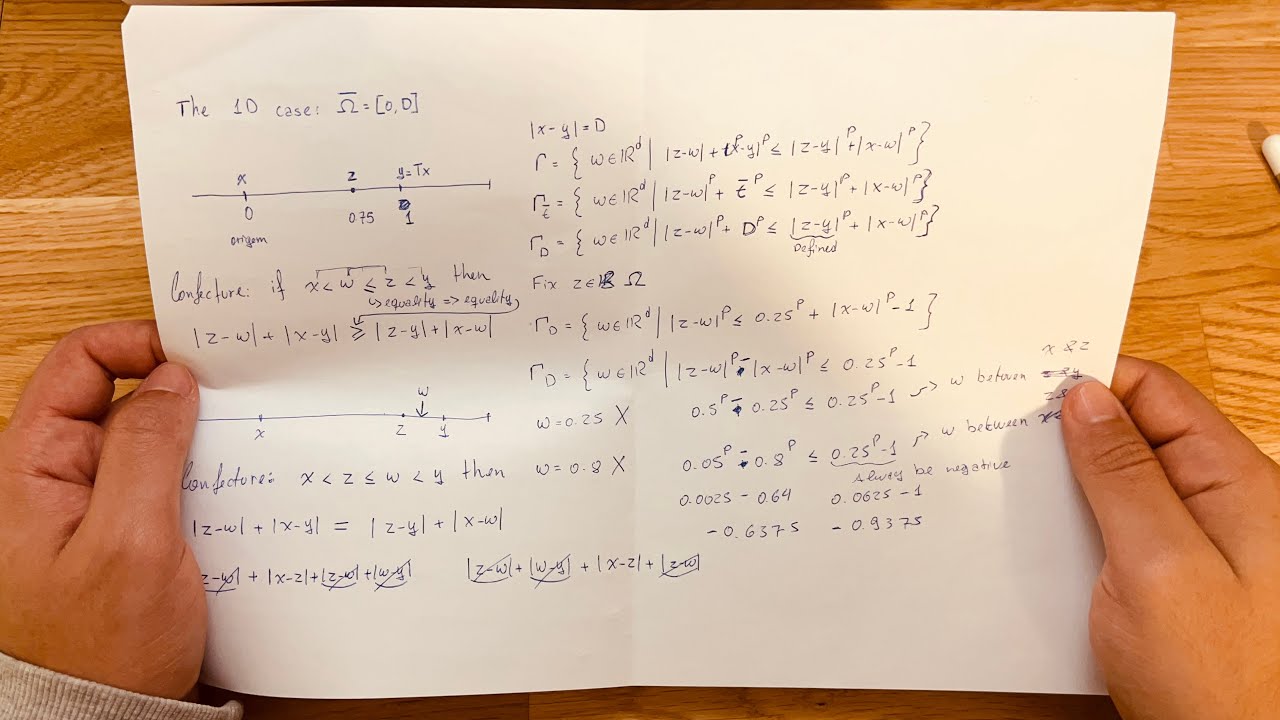 The 1D case: Ω̅ = [0,D]
x z y=Tx
0 0.75 1
origem
Confecture: if x < w ≤ z < y then
↳ equality => equality
|z-w| + |x-y| ≥ |z-y| + |x-w|
w
x z y
Confecture: x < z ≤ w < y then
|z-w| + |x-y| = |z-y| + |x-w|
|z-w| + |x-z| + |z-w| + |w-y|
|z-w| + |w-y| + |x-z| + |z-w|
|x-y| = D
Γ = { w∈ℝ^d | |z-w| + |x-y|^p ≤ |z-y|^p + |x-w|^p }
Γ_t̄ = { w∈ℝ^d | |z-w|^p + t̄^p ≤ |z-y|^p + |x-w|^p }
Γ_D = { w∈ℝ^d | |z-w|^p + D^p ≤ |z-y|^p + |x-w|^p }
Defined
Fix z∈ Ω
Γ_D = { w∈ℝ^d | |z-w|^p ≤ 0.25^p + |x-w|^p - 1 }
Γ_D = { w∈ℝ^d | |z-w|^p - |x-w|^p ≤ 0.25^p - 1
x & z
w = 0.25 X 0.5^p - 0.25^p ≤ 0.25^p - 1 ↝ w between
w = 0.8 X 0.05^p - 0.8^p ≤ 0.25^p - 1 ↝ w between
always be negative
0.0025 - 0.64 0.0625 - 1
-0.6375 -0.9375